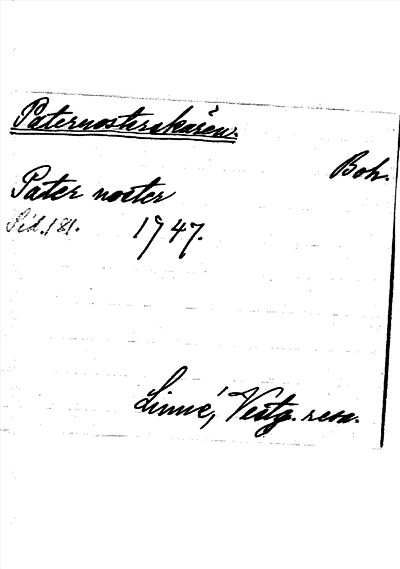 Paternosterskären.
Boh.
Pater noster
Sid. 181.
1947.
Linné, Vestg. resa.